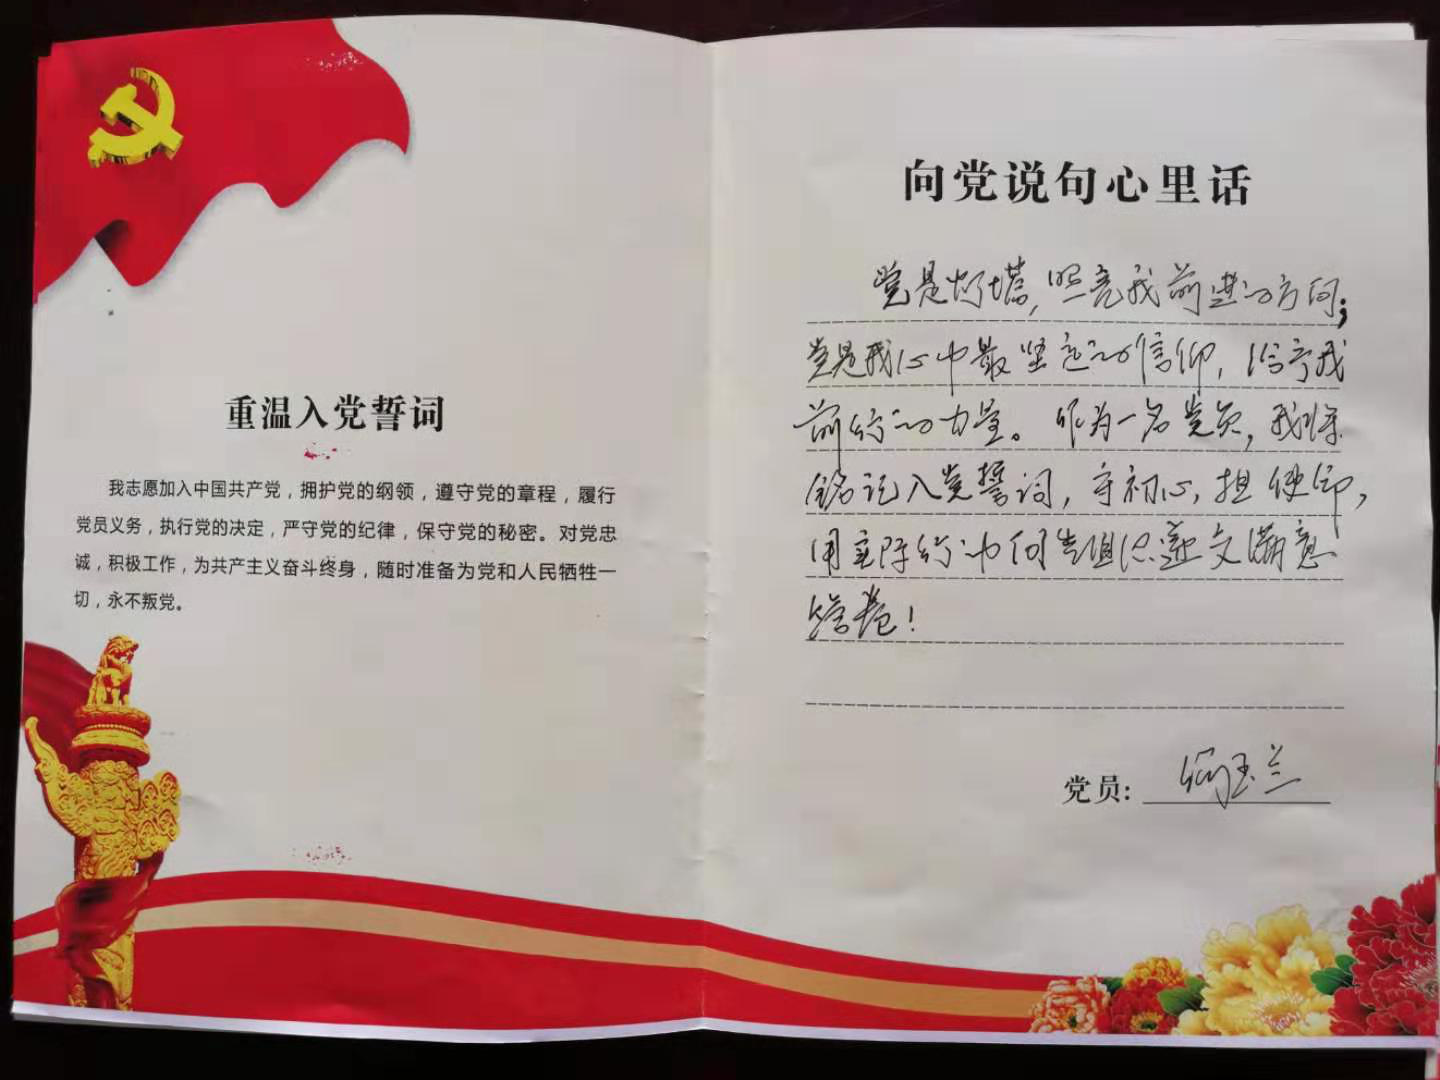 重温入党誓词
我志愿加入中国共产党，拥护党的纲领，遵守党的章程，履行
党员义务，执行党的决定，严守党的纪律，保守党的秘密。对党忠
诚，积极工作，为共产主义奋斗终身，随时准备为党和人民牺牲一
切，永不叛党。
向党说句心里话
党是灯塔，照亮我前进的方向；
党是我心中最坚定的信仰，给予我
前行的力量。作为一名党员，我将
铭记入党誓词，守初心，担使命，
用实际行动向党组织递交满意
答卷！
党员: 玉兰